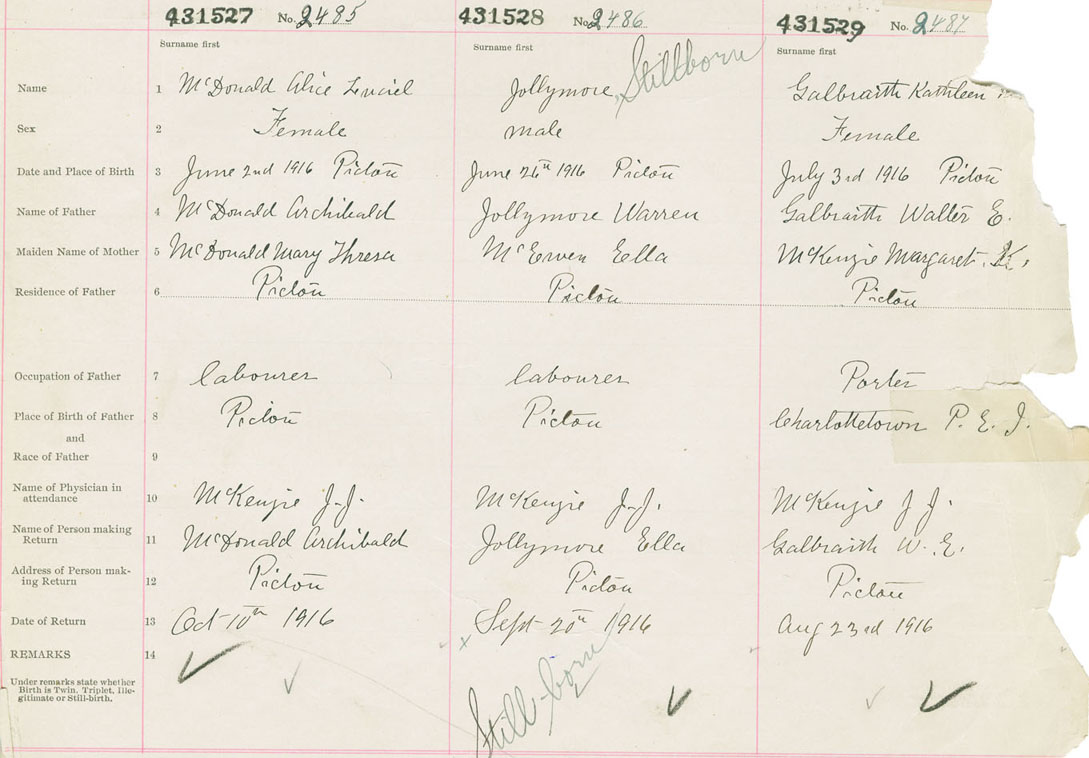 431527 No. 2485 431528 No. 2486 431529 No. 2487
Surname first Surname first Surname first
Stillborn
Name 1 McDonald Alice Luciel Jollymore, Galbraith Kathleen
Sex 2 Female male Female
Date and Place of Birth 3 June 2nd 1916 Pictou June 26th 1916 Pictou July 3rd 1916 Pictou
Name of Father 4 McDonald Archibald Jollymore Warren Galbraith Walter E.
Maiden Name of Mother 5 McDonald Mary Thresa McEwen Ella McKenzie Margaret. K.
Residence of Father 6 Pictou Pictou Pictou
Occupation of Father 7 labourer labourer Porter
Place of Birth of Father 8 Pictou Pictou Charlottetown P. E. I.
and
Race of Father 9
Name of Physician in
attendance 10 McKenzie J. J. McKenzie J. J. McKenzie J J.
Name of Person making
Return 11 McDonald Archibald Jollymore Ella Galbraith W. E.
Address of Person mak-
ing Return 12 Pictou Pictou Pictou
Date of Return 13 Oct 10th 1916 Sept 20th 1916 Aug 23rd 1916
REMARKS 14
Under remarks state whether
Birth is Twin, Triplet, Ille-
gitimate or Still-birth.
Still-born